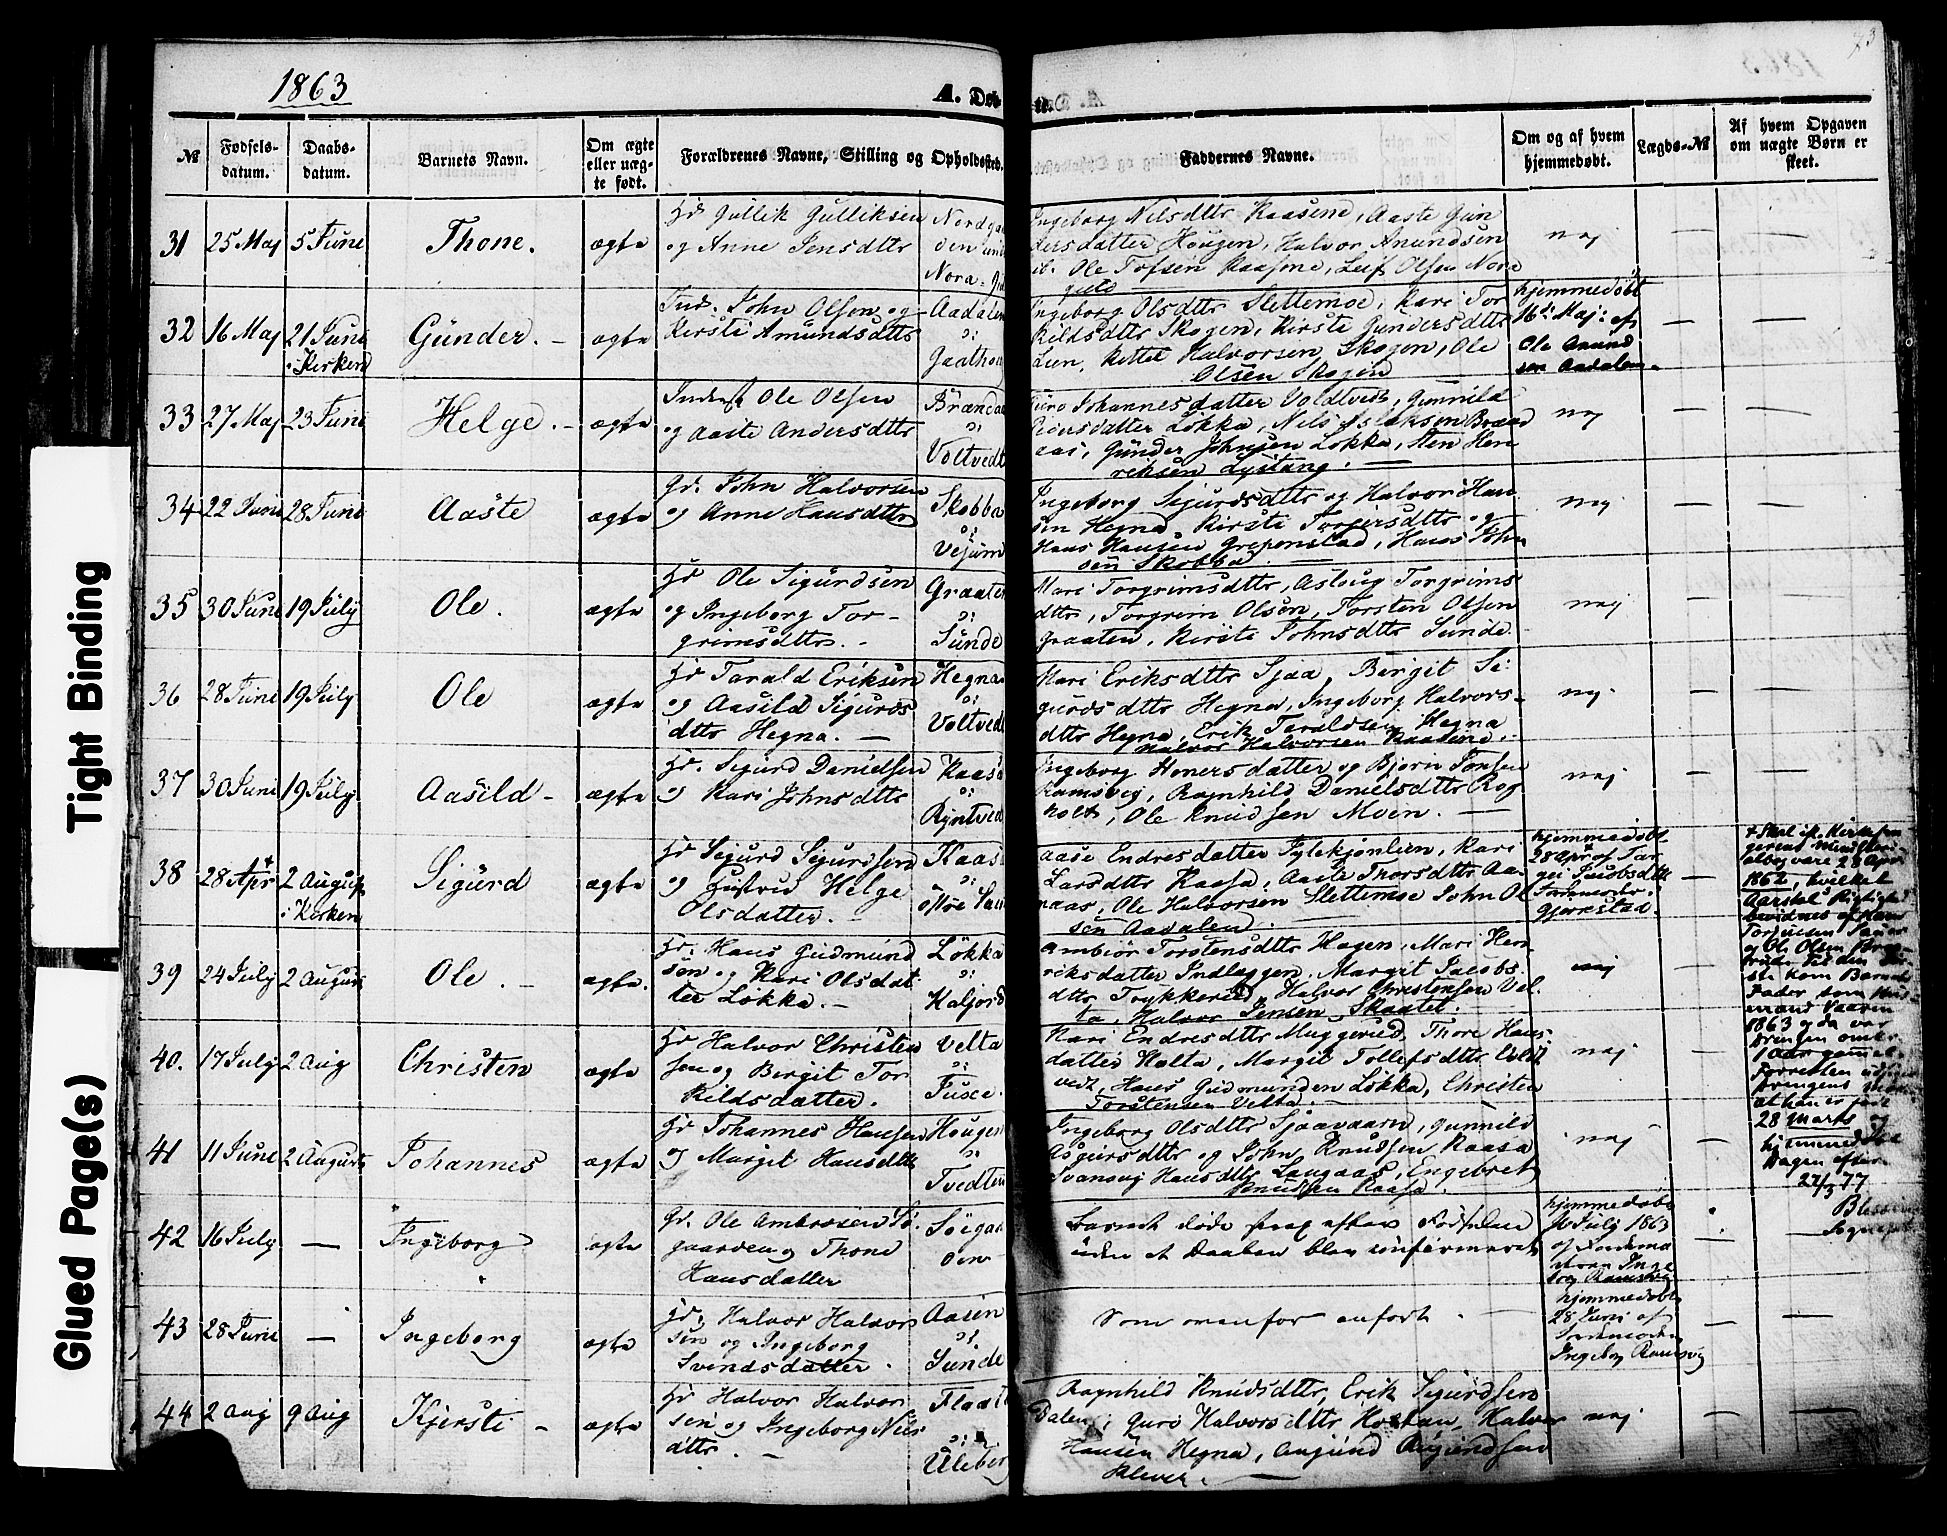 1863
A. Døb
te.
73
№
Fødsels-
datum.
Daabs-
datum.
Barnets Navn.
Om ægte
eller uæg-
te født.
Forældrenes Navne, Stilling og Opholdssted.
Faddernes Navne.
Om og af hvem
hjemmedøbt.
Lægds-№
Af hvem Opgaven
om uægte Børn er
skeet.
31 25 Maj 5 Juni Thone. ægte
Hd Gullik Gulliksen
og Anne Jensdttr
Ingeborg Nilsdttr Raasene, Aaste Gun
dersdatter Hougen, Halvor Amundsen
Ole Tofsen Raasene, Leif Olsen Nora
naj
32 16 Maj 21 Juni
i Kirken
Günder. - ægte
Ind. John Olsen og
Kersti Amundsdttr
Aadalen
Ingeborg Olsdttr Slettemoe, Kari Tor
kildsdttr Skogen, Kirsti Gundersdttr
Lien, Kittel Halvorsen Skogen, Ole
Olsen Skogen
hjemmedøbt
16 Maj af
Ole Amund
sen Aadalen.
33 27 Maj 23 Juni Helge. - ægte
Inderst Ole Olsen
og Aaste Andersdttr
Voltvedt
Guro Johannesdatter Voldtvedt, Gunnild
Løkka, Nils Aslaksen
Günder Johnsen Løkka, Sten Hen
riksen
naj
34 22 Juni 28 Juni Aaste ægte
Gd. John Halvorsen
og Anne Hansdttr
Skobba
Ingeborg Sigurdsdttr og Halvor Han
sen Hegna, Kirsti Torgersdttr og
Hans Hansen Grepenstad, Hans John
sen Skobba
naj
35 30 Juni 19 July Ole. ægte
Hd Ole Sigurdsen
og Ingeborg Tor-
grimsdttr. -
Graaten
Sunde
Mari Torgrimsdttr, Aslaug Torgrims
dttr, Torgrim Olsen, Torsten Olsen
Graaten, Kirsti Johnsdttr Sunde.
naj
36 28 Juni 19 July Ole ægte
Hd Tarald Eriksen
og Aasild Sigurds
dttr Hegna. -
Hegna
Voltvedt
Mari Eriksdttr Sjaa, Bergit Si
gurdsdttr Hegna, Ingeborg Halvors-
dttr Hegna, Erik Taraldsen Hegna
Halvor Halvorsen Raasene.
naj
37 30 Juni 19 July Aasild - ægte
Hd. Sigurd Danielsen
og Kari Johnsdttr
Raasa
Ingeborg Henersdatter og Bjørn Jonsen
Ramsvig, Ragnhild Danielsdttr Rog
holt, Ole Knudsen Moen.
naj
38 28 Apr 2 August
i Kirken
Sigurd ægte
Hd Sigurd Sigurdsen
og Hustru Helge
Olsdatter. -
Aase Endresdatter Kari
Larsdttr Raasa, Aaste Thorsdttr Aa-
naas, Ole Halvorsen Slettemoe John Ol
sen Aadalen
hjemmedøbt
28 Apr af Tor
Jacobsdttr
Gjernstad.
28 Apr
1862, hvilket
Aarstal Rigtighed
bevidnes af
og Ole Olsen
kom Barnets
Fader som Hus
mand Vaaren
1863 og da var
Drengen omkr.
1 Aar gammel
28 Marts og
hjemmedøbt
Dagen efter.
27/3 77
39 24 July 2 August Ole. - ægte.
Hd. Hans Gudmund
sen og Kari Olsdat
ter Løkka. -
Løkka
Kaljord
Ambjør Torstensdttr Hagen, Mari Hen
riksdatter Indlæggen, Margit Jacobs
dttr Trykkerud, Halvor Christensen Vel
ta, Halvor Jensen Skaatet.
naj
40. 17 July 2 Aug Christen ægte
Hd Halvor Christen
sen og Bergit Tor
kildsdatter.
Velta
Kari Endresdttr Muggerud, Thore Hans
datter Holta, Margit Tollefsdttr
vedt, Hans Gudmunden Løkka, Christen
Torstensen Velta.
naj
41 11 Juni 2 August Johannes ægte
Hd Johannes Hansen
og Margit Hansdttr
Hougen
Tvedten
Ingeborg Olsdttr Sjaavaarn, Gunnild
Asgersdttr og John Knudsen Raasa
Svansvij Hansdttr Langaas, Engebret
Knudsen Raasa.
naj
42 16 July — Ingeborg ægte
Gd. Ole Ambrosen Sø
gaarden og Thone
Hansdatter
Søgaar
den
Barnet døde strax efter Fødselen
uden at Daaben blev confirmeret
hjemmedøbt
16 July 1863
af Jordemo
deren Inge
borg Ramsvig
43 28 Juni — Ingeborg ægte
Hd. Halvor Halvor
sen og Ingeborg
Svendsdatter.
Aasen
Sunde
Som ovenfor anført
hjemmedøbt
28 Juni af
Jordemoder
Ingebog Ramsvig
44 2 Aug 9 Aug Kjersti - ægte
Hd Halvor Halvor
sen og Ingeborg Nils
dttr. -
Uleberg
Ragnhild Knudsdttr, Erik Sigurdsen
Dalen, Guro Halvorsdttr Halvor
Hansen Hegna, Anjund Anjundsen
Klever.
naj
Tight Binding
Glued Page(s)